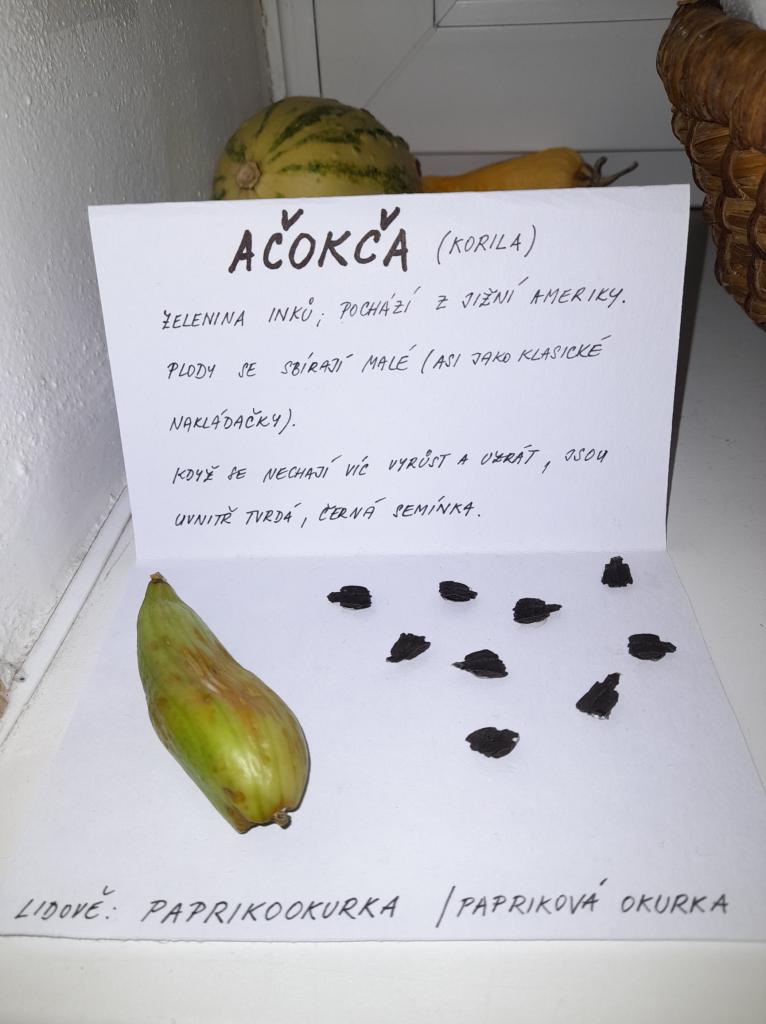 AČOKČA (KORILA)
ZELENINA INKŮ; POCHÁZÍ Z JIŽNÍ AMERIKY.
PLODY SE SBÍRAJÍ MALÉ (ASI JAKO KLASICKÉ
NAKLÁDAČKY).
KDYŽ SE NECHAJÍ VÍC VYRŮST A UZRÁT, JSOU
UVNITŘ TVRDÁ, ČERNÁ SEMÍNKA.
LIDOVĚ: PAPRIKOOKURKA / PAPRIKOVÁ OKURKA